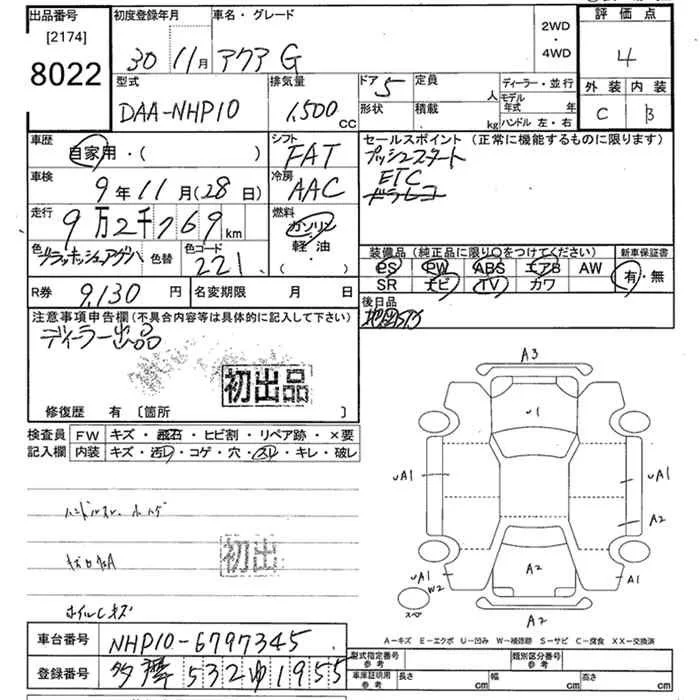 出品番号 [2174] 8022
初度登録年月 30年 11月
車名・グレード アクア G
2WD・4WD
評価点 4
外装 C 内装 B
型式 DAA-NHP10
排気量 1,500 CC
ドア 5
形状
定員 人
積載 kg
ディーラー・並行
モデル年式 年
ハンドル 左・右
車歴 自家用・( )
シフト FAT
セールスポイント (正常に機能するものに限ります)
プッシュスタート
ETC
車検 9年 11月 (28日)
冷房 AAC
走行 9万2千769km
燃料 ガソリン・軽油・( )
色 ブラッキッシュアゲハ 色替
色コード 221
装備品 (純正品に限り○をつけてください)
新車保証書 有・無
PS PW ABS エアB AW
SR ナビ TV カワ
R券 9,130円
名変期限 月 日
後日品
注意事項申告欄 (不具合内容等は具体的に記入して下さい)
ディーラー出品
初出品
修復歴 有 [箇所 ]
検査員記入欄
FW キズ・飛石・ヒビ割・リペア跡・×要
内装 キズ・汚レ・コゲ・穴・スレ・キレ・破レ
初出
ホイルキズ
A3
U1
UA1
UA1
A2
UA1
W2
A2
A1
スペア
A2
A-キズ E-エクボ U-凹み W-補修跡 S-サビ C-腐食 XX-交換済
車台番号 NHP10-6797345
登録番号 多摩 532 ゆ 1955
型式指定番号 参考
類別区分番号 参考
車庫証明用 参考 長さ cm 幅 cm 高さ cm